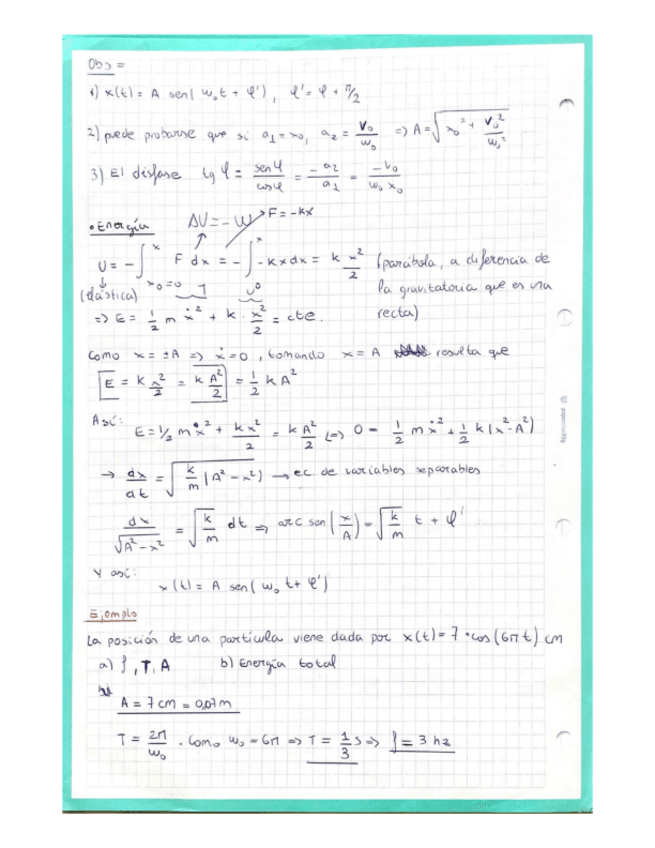 Obs =
1) x(t) = A sen(ω₀t + φ'), φ' = φ + π/2
2) puede probarse que si a₁ = x₀, a₂ = V₀/ω₀ => A = √(x₀² + V₀²/ω₀²)
3) El desfase tg φ = sen φ / cos φ = -a₂/a₁ = -V₀/(ω₀ x₀)
• Energía ΔU = -W F = -kx
U = -∫ₓ₀₌₀ˣ F dx = -∫ˣ -kx dx = k x²/2 (parábola, a diferencia de
(elástica) la gravitatoria que es una
=> E = 1/2 m ẋ² + k · x²/2 = cte. recta)
Como x = ±A => ẋ = 0, tomando x = A resulta que
E = k x²/2 = k A²/2 = 1/2 k A²
Así: E = 1/2 m ẋ² + kx²/2 = kA²/2 (=> 0 = 1/2 m ẋ² + 1/2 k(x² - A²)
→ dx/dt = √(k/m (A² - x²)) → ec. de variables separables
dx/√(A² - x²) = √(k/m) dt => arc sen(x/A) = √(k/m) t + φ'
Y así:
x(t) = A sen(ω₀t + φ')
Ejemplo
La posición de una partícula viene dada por x(t) = 7 · cos(6πt) cm
a) f, T, A b) Energía total
A = 7 cm = 0,07 m
T = 2π/ω₀ . Como ω₀ = 6π => T = 1/3 s => f = 3 hz